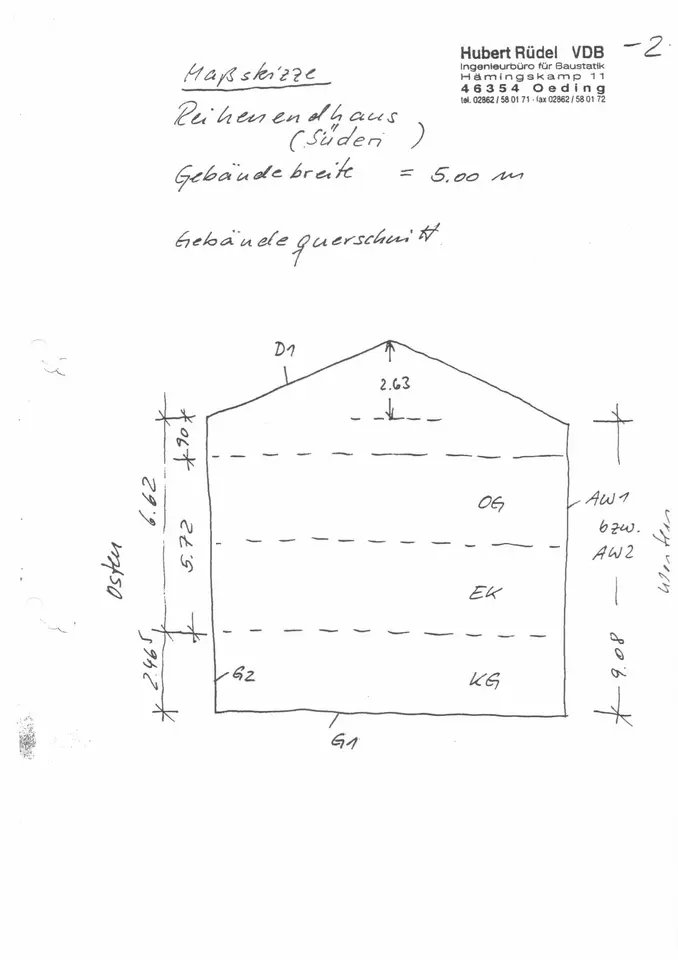 Hubert Rüdel VDB
Ingenieurbüro für Baustatik
Hämingskamp 11
46354 Oeding
tel. 02862 / 58 01 71 - fax 02862 / 58 01 72
-2
Maßskizze
Reihenendhaus
(Süden)
Gebäudebreite = 5.00 m
Gebäudequerschnitt
D1
2.63
90
6.62
5.72
OG
AW1
bzw.
AW2
Osten
Westen
EK
2.465
G2
KG
9.08
G1